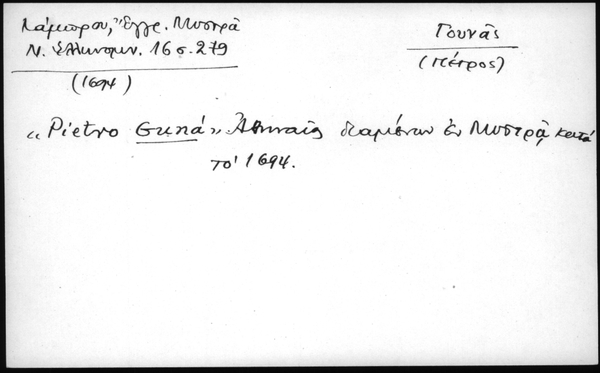 Λάμπρου, Ἔγγρ. Μυστρᾶ
Ν. Ἑλληνομν. 16 σ. 279
(1694)
Γουνᾶς
(Πέτρος)
« Pietro Guná » Ἀθηναῖος διαμένων ἐν Μυστρᾷ κατά
τό 1694.